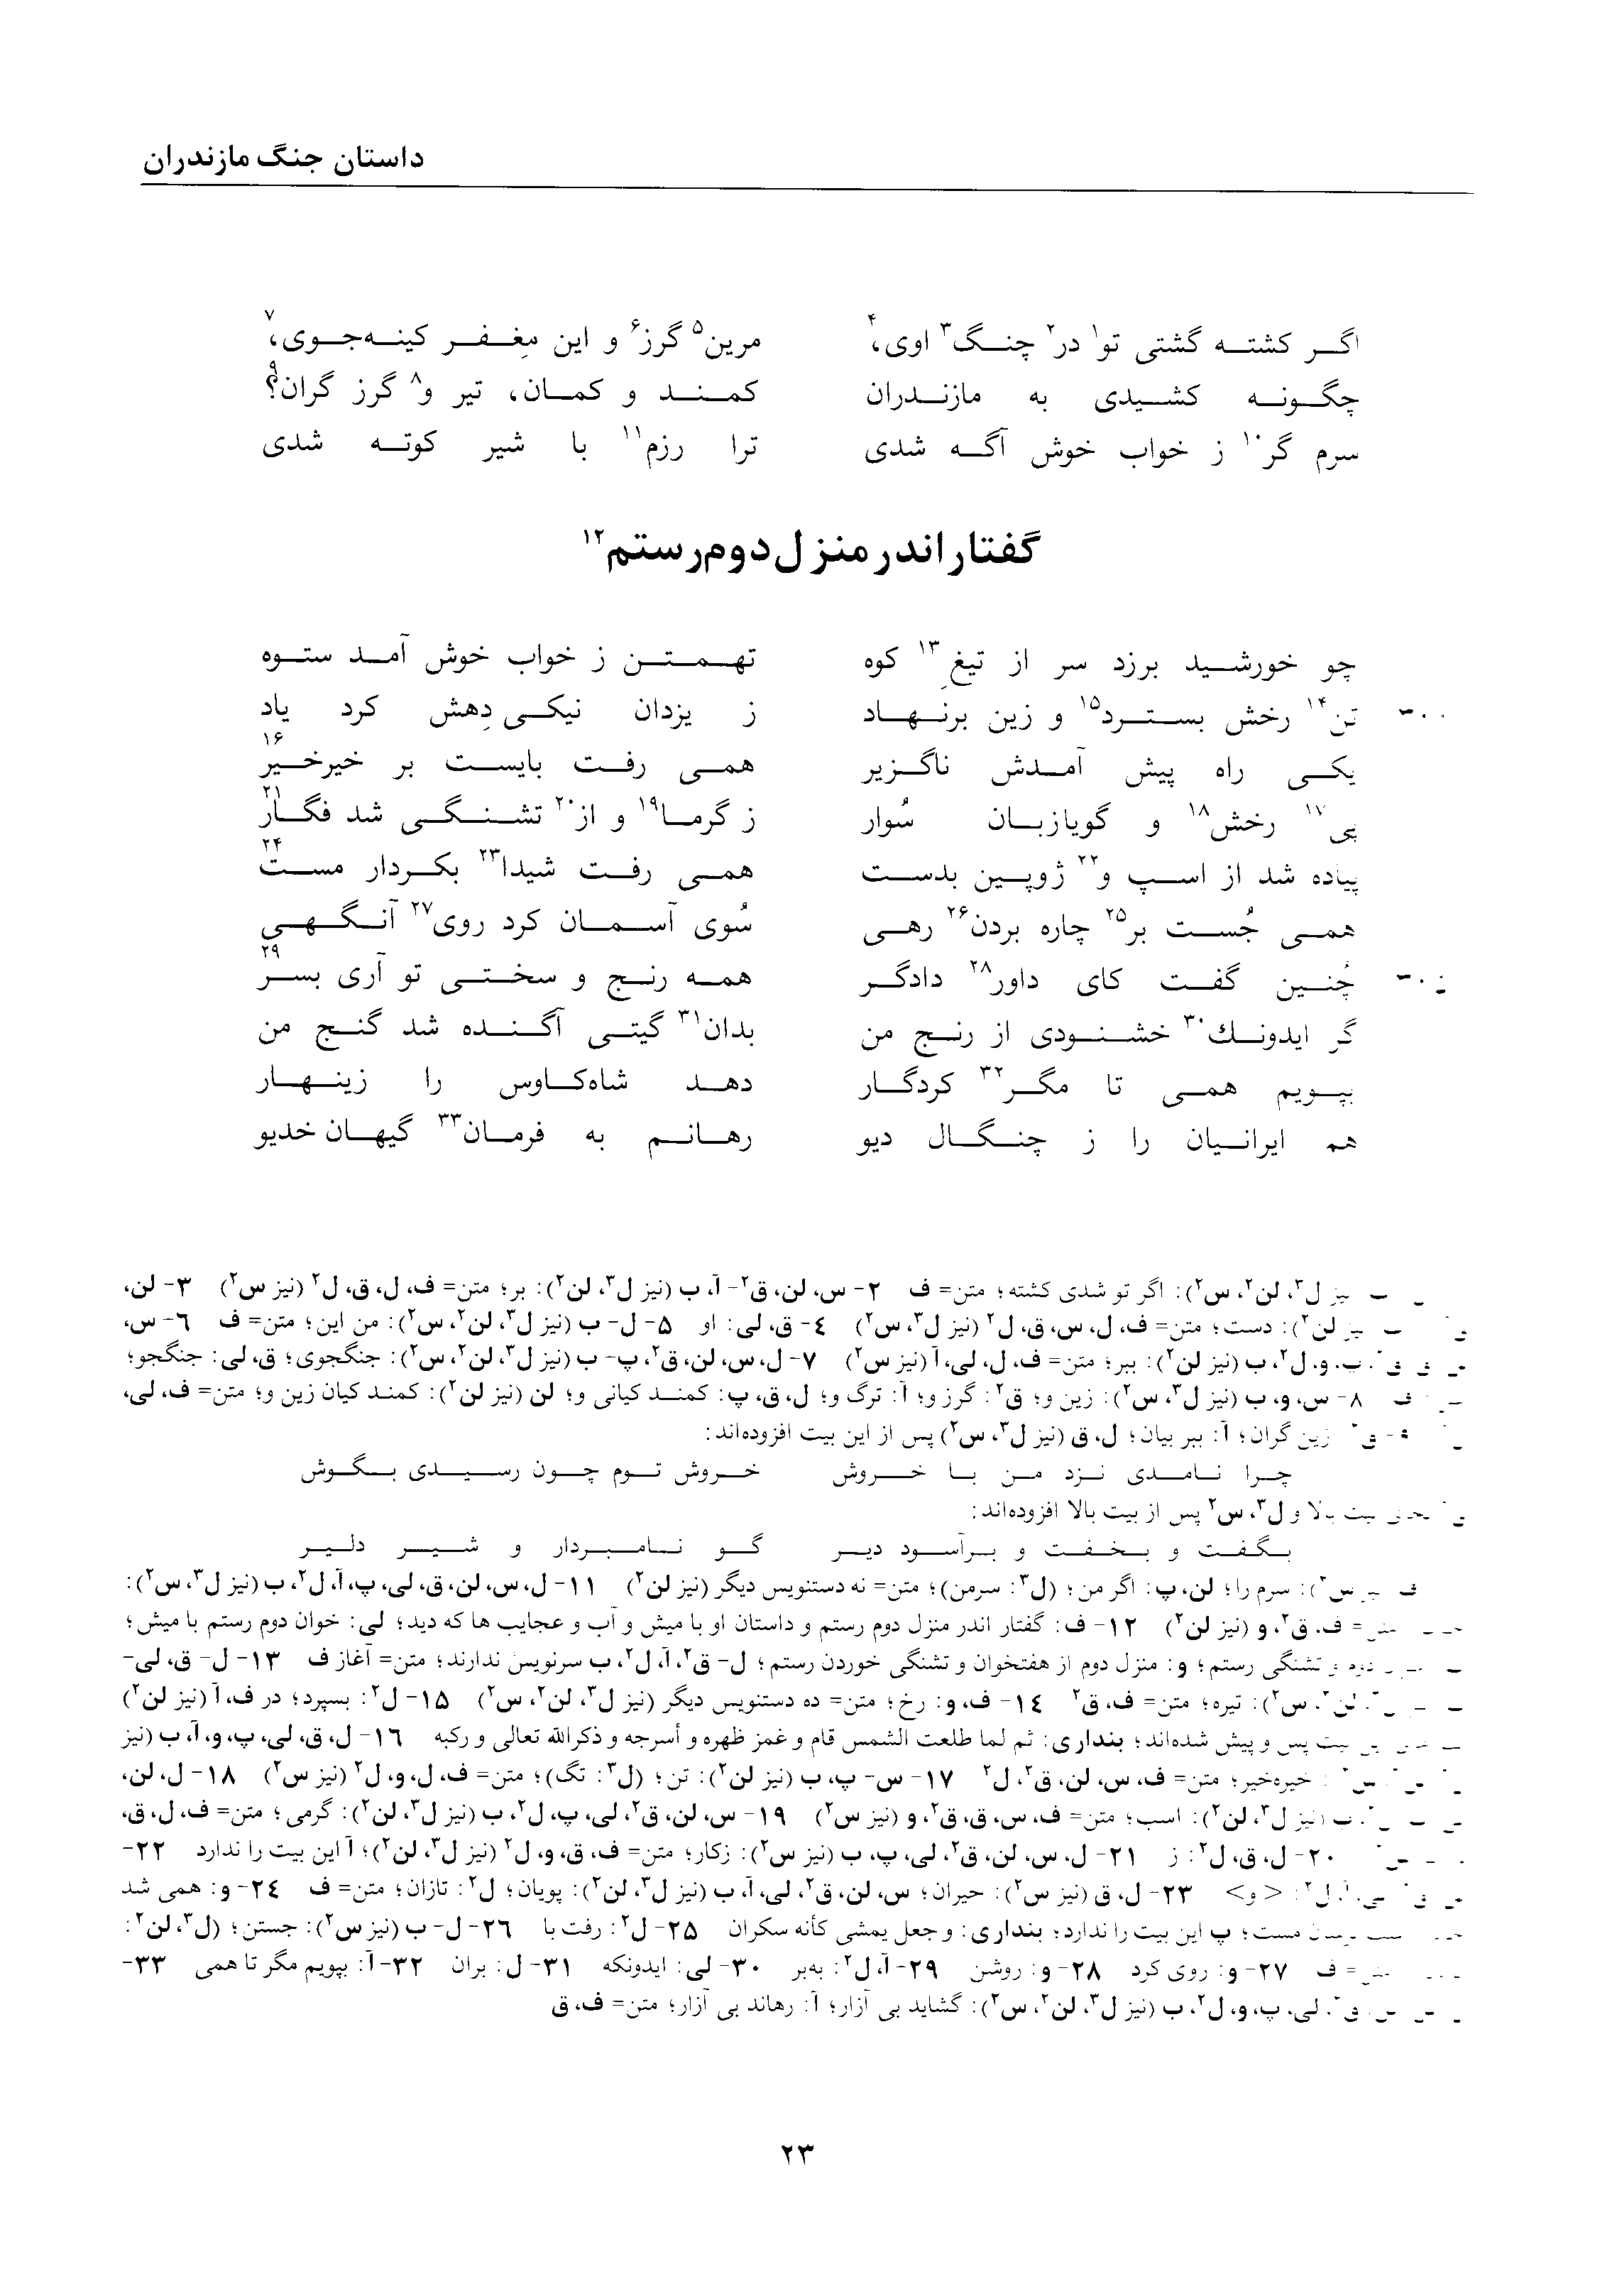 داستان جنگ مازندران
اگر کشته گشتی تو۱ در۲ چنگ۳ اوی،۴ مرین۵ گرز۶ و این مِغفر کینه‌جوی،۷
چگونه کشیدی به مازندران کمند و کمان، تیر و۸ گرز گران؟۹
سرم گر۱۰ ز خواب خوش آگه شدی ترا رزم۱۱ با شیر کوته شدی
گفتار اندر منزل دوم رستم۱۲
چو خورشید برزد سر از تیغِ۱۳ کوه تهمتن ز خواب خوش آمد ستوه
تن۱۴ رخش بسترد۱۵ و زین برنهاد ز یزدان نیکی دِهش کرد یاد
یکی راه پیش آمدش ناگزیر همی رفت بایست بر خیرخیر۱۶
پی۱۷ رخش۱۸ و گویازبان سُوار ز گرما۱۹ و از۲۰ تشنگی شد فگار۲۱
پیاده شد از اسپ و۲۲ ژوپین بدست همی رفت شیدا۲۳ بکردار مست۲۴
همی جُست بر۲۵ چاره بردن۲۶ رهی سُوی آسمان کرد روی۲۷ آنگهی
چُنین گفت کای داور۲۸ دادگر همه رنج و سختی تو آری بسر۲۹
گر ایدونک۳۰ خشنودی از رنج من بدان۳۱ گیتی آگنده شد گنج من
بپویم همی تا مگر۳۲ کردگار دهد شاه‌کاوس را زینهار
هم ایرانیان را ز چنگال دیو رهانم به فرمان۳۳ گیهان خدیو
ل۳، لن۲، س۲): اگر تو شدی کشته؛ متن= ف ۲- س، لن، ق۲- آ، ب (نیز ل۳، لن۲): بر؛ متن= ف، ل، ق، ل۲ (نیز س۲) ۳- لن،
لن۲): دست؛ متن= ف، ل، س، ق، ل۲ (نیز ل۳، س۲) ۴- ق، لی: او ۵- ل- ب (نیز ل۳، لن۲، س۲): من این؛ متن= ف ۶- س،
ب، و، ل۲، ب (نیز لن۲): ببر؛ متن= ف، ل، لی، آ (نیز س۲) ۷- ل، س، لن، ق۲، پ- ب (نیز ل۳، لن۲، س۲): جنگجوی؛ ق، لی: جنگجو؛
ف ۸- س، و، ب (نیز ل۳، س۲): زین و؛ ق۲: گرز و؛ آ: ترگ و؛ ل، ق، پ: کمند کیانی و؛ لن (نیز لن۲): کمند کیان زین و؛ متن= ف، لی،
زین گران؛ آ: ببر بیان؛ ل، ق (نیز ل۳، س۲) پس از این بیت افزوده‌اند:
چرا نامدی نزد من با خروش خروش توم چون رسیدی بگوش
بیت بالا و ل۳، س۲ پس از بیت بالا افزوده‌اند:
بگفت و بخفت و برآسود دیر گو نامبردار و شیر دلیر
س۲): سرم را؛ لن، پ: اگر من؛ (ل۳: سرمن)؛ متن= نه دستنویس دیگر (نیز لن۲) ۱۱- ل، س، لن، ق، لی، پ، آ، ل۲، ب (نیز ل۳، س۲):
ف، ق۲، و (نیز لن۲) ۱۲- ف: گفتار اندر منزل دوم رستم و داستان او با میش و آب و عجایب ها که دید؛ لی: خوان دوم رستم با میش؛
و تشنگی رستم؛ و: منزل دوم از هفتخوان و تشنگی خوردن رستم؛ ل- ق۲، آ، ل۲، ب سرنویس ندارند؛ متن= آغاز ف ۱۳- ل- ق، لی-
س۲): تیره؛ متن= ف، ق۲ ۱۴- ف، و: رخ؛ متن= ده دستنویس دیگر (نیز ل۳، لن۲، س۲) ۱۵- ل۲: بسپرد؛ در ف، آ (نیز لن۲)
بیت پس و پیش شده‌اند؛ بنداری: ثم لما طلعت الشمس قام و غمز ظهره و أسرجه و ذکرالله تعالی و رکبه ۱۶- ل، ق، لی، پ، و، آ، ب (نیز
خیره‌خیر؛ متن= ف، س، لن، ق۲، ل۲ ۱۷- س- پ، ب (نیز لن۲): تن؛ (ل۳: تگ)؛ متن= ف، ل، و، ل۲ (نیز س۲) ۱۸- ل، لن،
ب (نیز ل۳، لن۲): اسب؛ متن= ف، س، ق، ق۲، و (نیز س۲) ۱۹- س، لن، ق۲، لی، پ، ل۲، ب (نیز ل۳، لن۲): گرمی؛ متن= ف، ل، ق،
۲۰- ل، ق، ل۲: ز ۲۱- ل، س، لن، ق۲، لی، پ، ب (نیز س۲): زکار؛ متن= ف، ق، و، ل۲ (نیز ل۳، لن۲)؛ آ این بیت را ندارد ۲۲-
ل۲: <و> ۲۳- ل، ق (نیز س۲): حیران؛ س، لن، ق۲، لی، آ، ب (نیز ل۳، لن۲): پویان؛ ل۲: تازان؛ متن= ف ۲۴- و: همی شد
مست؛ پ این بیت را ندارد؛ بنداری: و جعل یمشی کأنه سکران ۲۵- ل۲: رفت با ۲۶- ل- ب (نیز س۲): جستن؛ (ل۳، لن۲:
= ف ۲۷- و: روی کرد ۲۸- و: روشن ۲۹- آ، ل۲: به‌بر ۳۰- لی: ایدونکه ۳۱- ل: بران ۳۲- آ: بپویم مگر تا همی ۳۳-
لی، پ، و، ل۲، ب (نیز ل۳، لن۲، س۲): گشاید بی آزار؛ آ: رهاند بی آزار؛ متن= ف، ق
۲۳